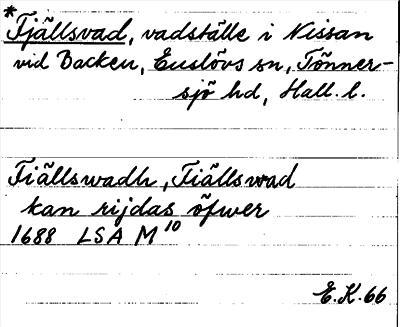 *Fjällsvad, vadställe i Nissan
vid Backen, Enslövs sn, Tönner-
sjö hd, Hall. l.
Fiällswadh, Fiällswad
kan rijdas öfwer
1688 LSA M10
E.K. 66